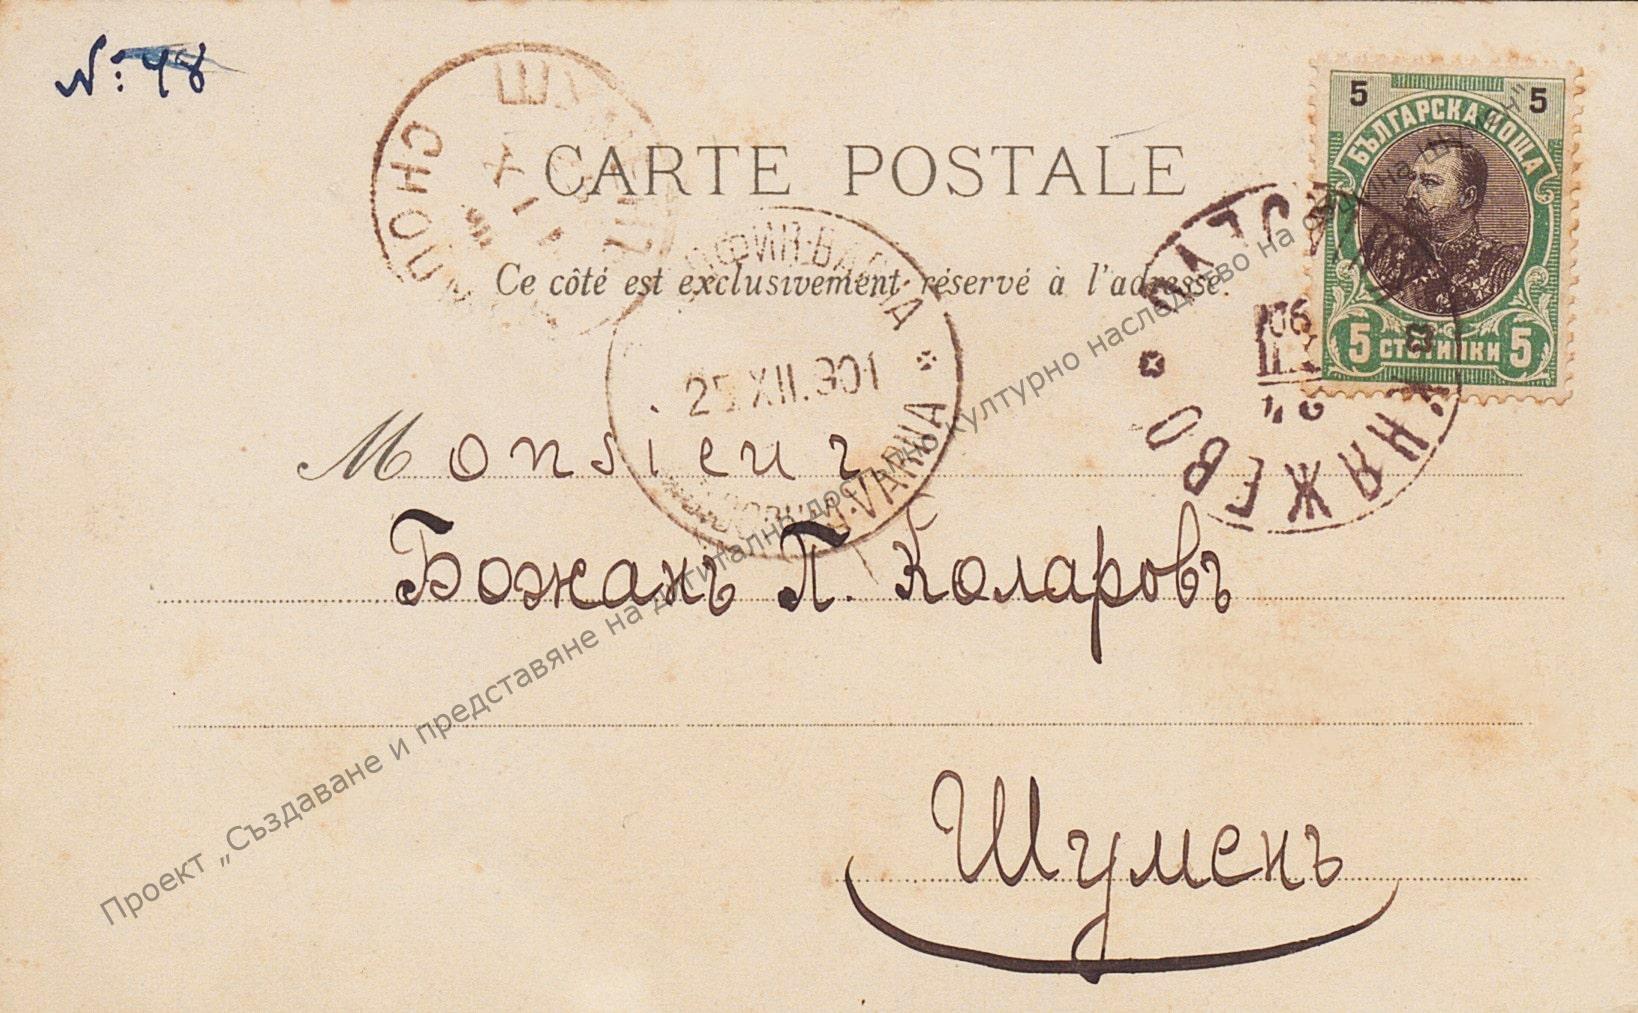 №: 48
CARTE POSTALE
Ce côté est exclusivement réservé à l'adresse.
5 5
БЪЛГАРСКА ПОЩА
5 СТОТИНКИ 5
25 XII.901
VARNA
КНЯЖЕВО
Monsieur
Божанъ П. Коларовъ
Шуменъ
Проект „Създаване и представяне на дигитално достъпно културно наследство на